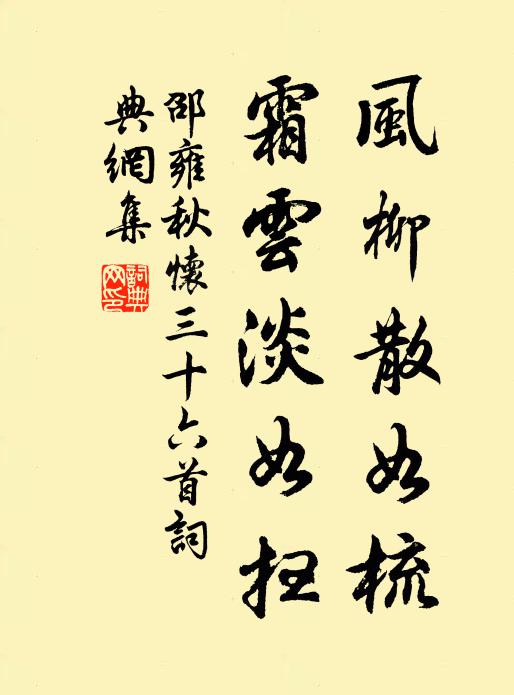 風柳散如梳
霜雲淡如掃
邵雍秋懷三十六首詞
典網集
詞典
网印